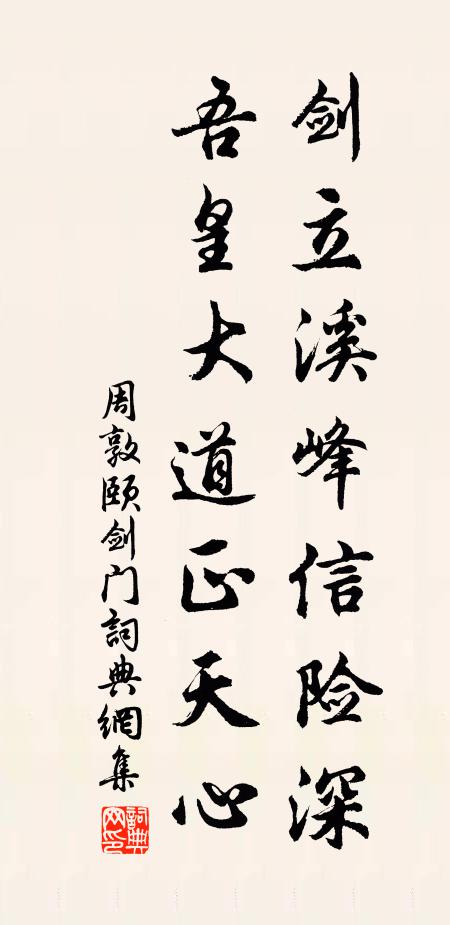 剑立溪峰信险深
吾皇大道正天心
周敦颐剑门詞典網集
詞典网印